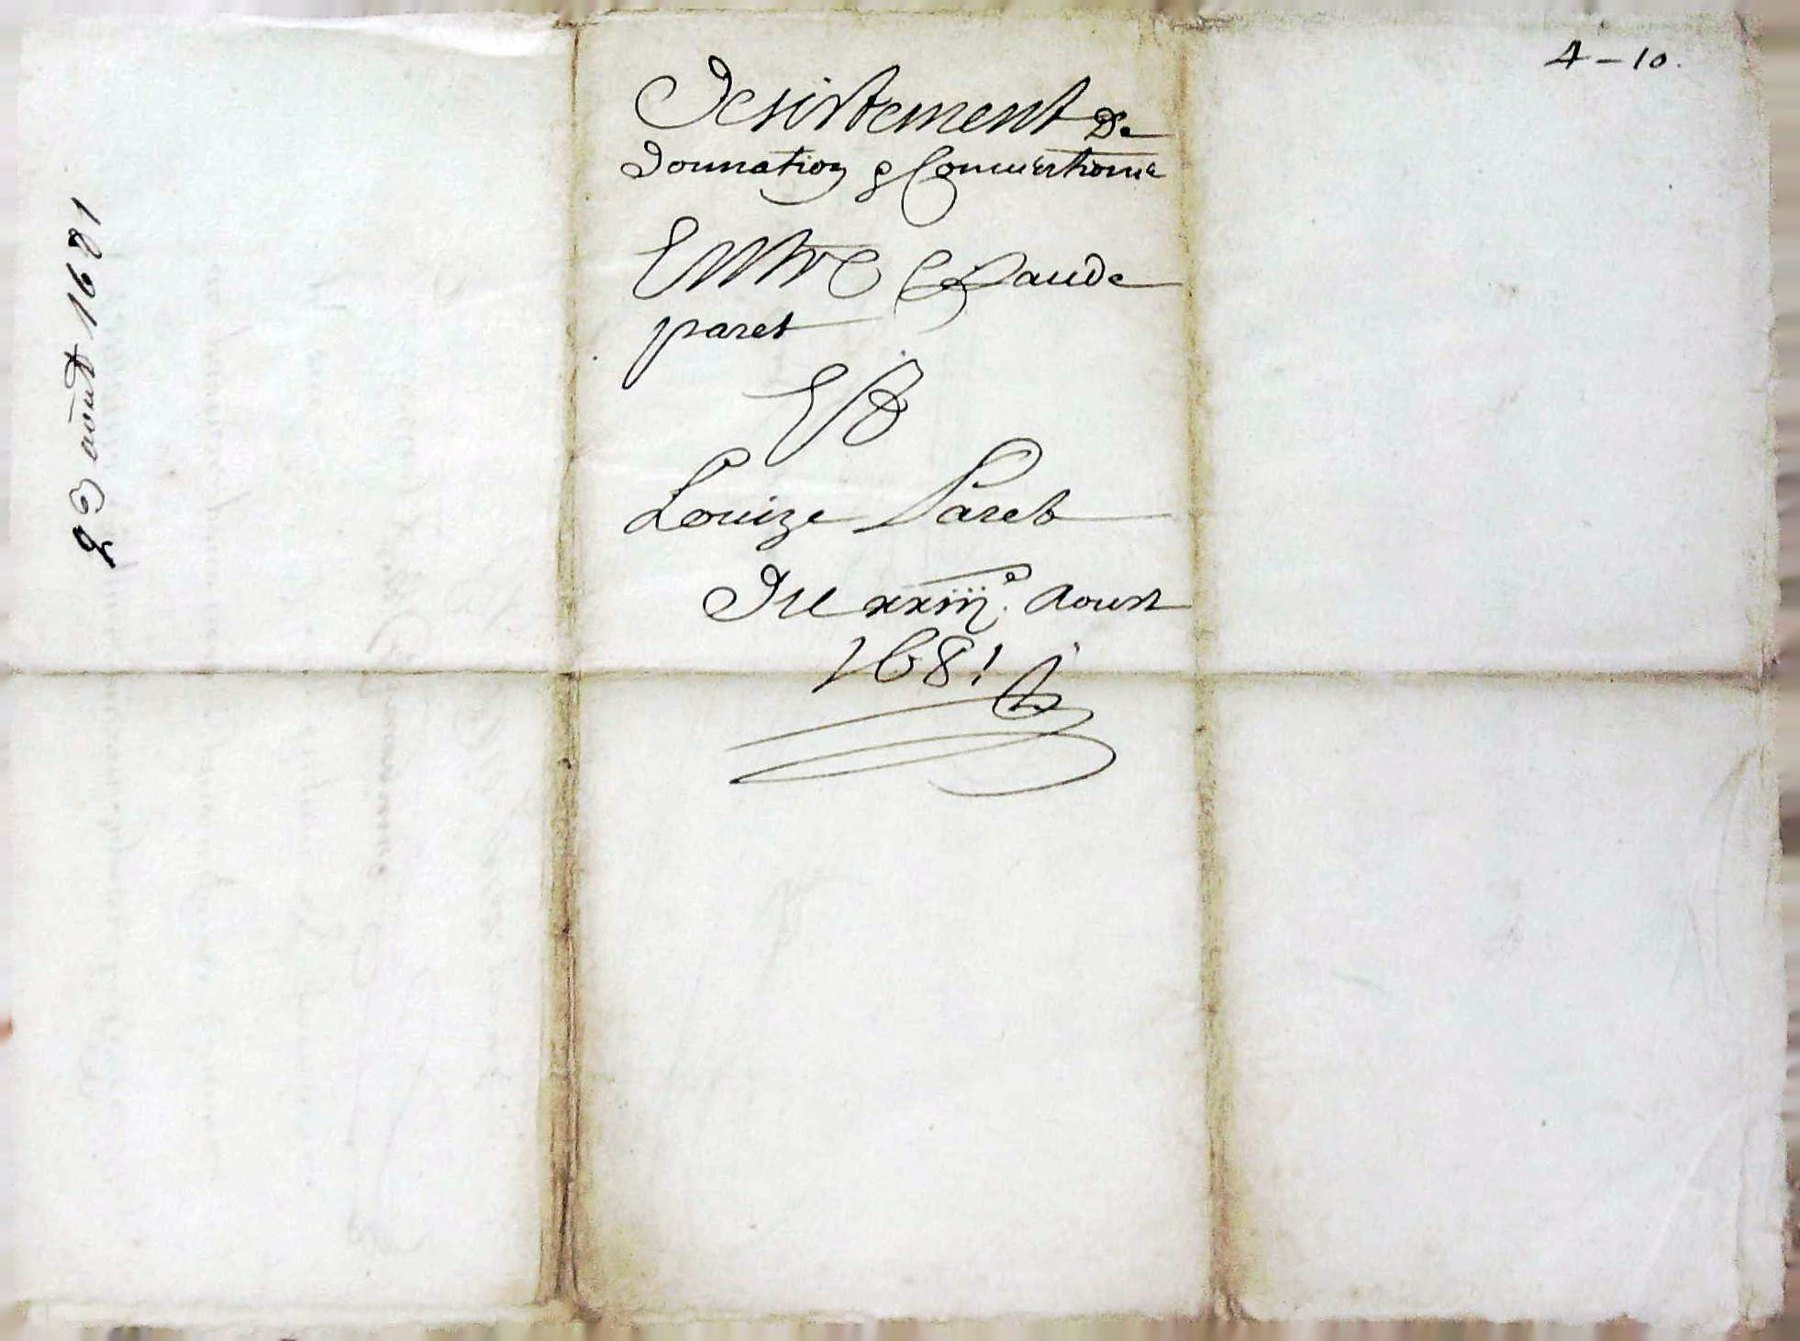 4-10.
23 août 1681
Desistement de
donnation & Conventions
Entre Claude
paret
Et
Louize Paret
Du xxiij.e Aoust
1681